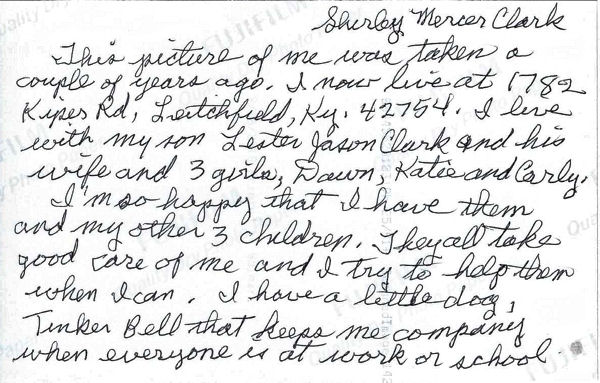 Shirley Mercer Clark
This picture of me was taken a
couple of years ago. I now live at 1782
Kipes Rd, Leitchfield, Ky. 42754. I live
with my son Lester Jason Clark and his
wife and 3 girls, Dawn, Katie and Carly.
I'm so happy that I have them
and my other 3 children. They all take
good care of me and I try to help them
when I can. I have a little dog,
Tinker Bell that keeps me company
when everyone is at work or school